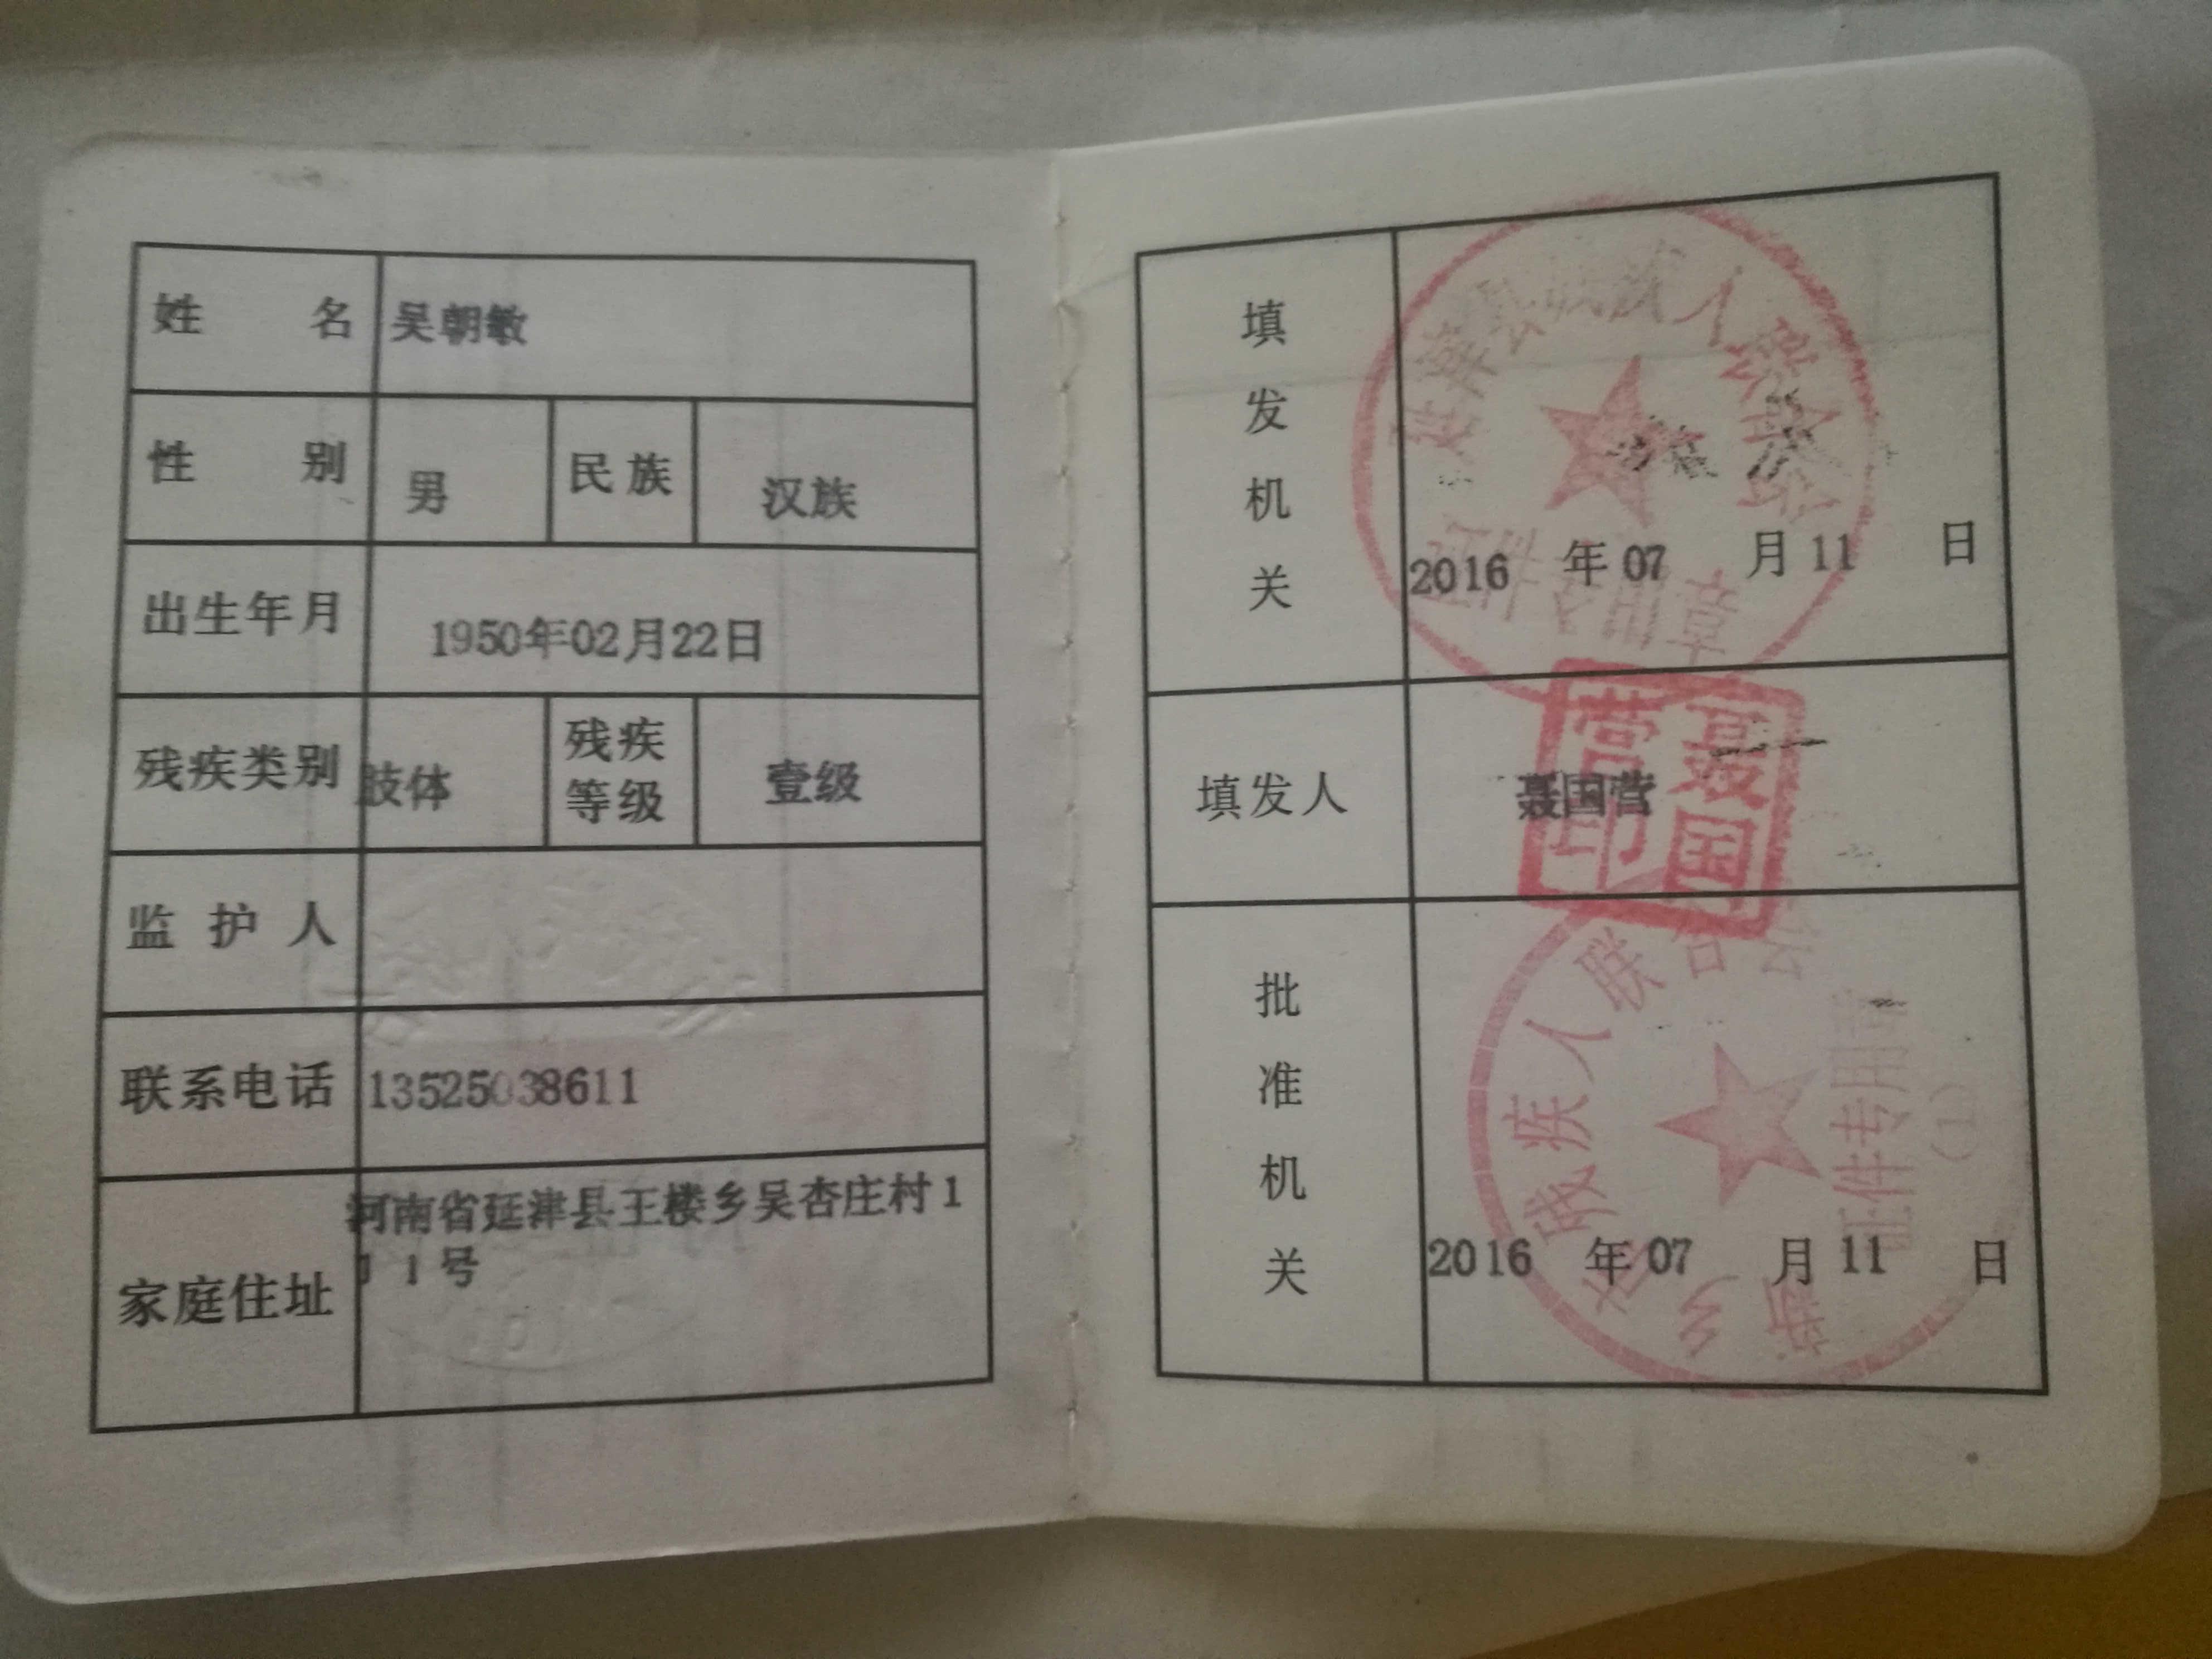 姓 名 吴朝敏
性 别 男 民族 汉族
出生年月 1950年02月22日
残疾类别 肢体 残疾等级 壹级
监护人
联系电话 13525038611
家庭住址 河南省延津县王楼乡吴杏庄村1
11号
填发机关
延津县残疾人联合会
证件专用章
2016 年 07 月 11 日
填发人 聂国营
聂国营印
批准机关
残疾人联合会
证件专用章
(1)
2016 年 07 月 11 日